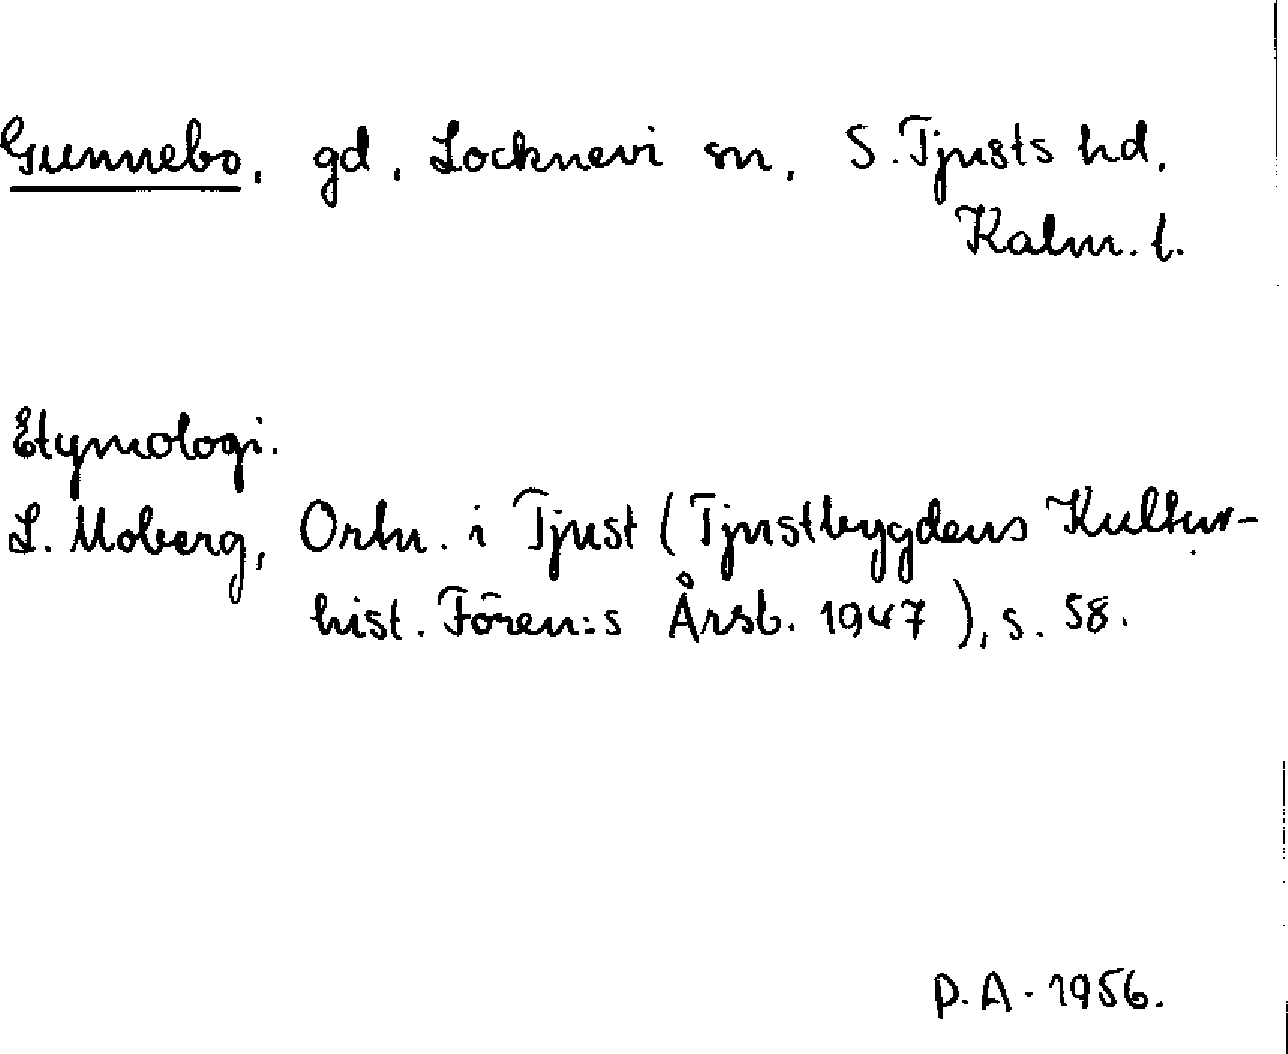 Gunnebo, gd, Locknevi sn, S. Tjusts hd,
Kalm. l.
Etymologi.
L. Moberg, Ortn. i Tjust (Tjustbygdens Kultur-
hist. Fören:s Årsb. 1947), s. 58.
P.A. 1956.